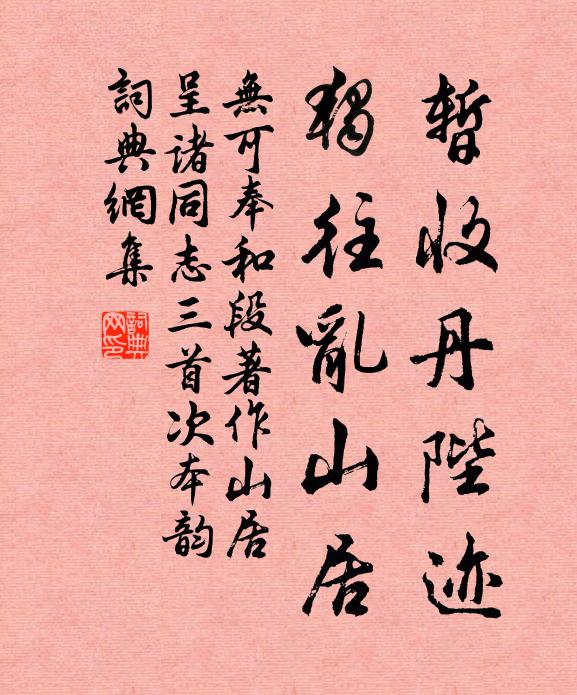 暫收丹陛迹
獨往亂山居
無可奉和段著作山居
呈诸同志三首次本韵
詞典網集
詞典網印